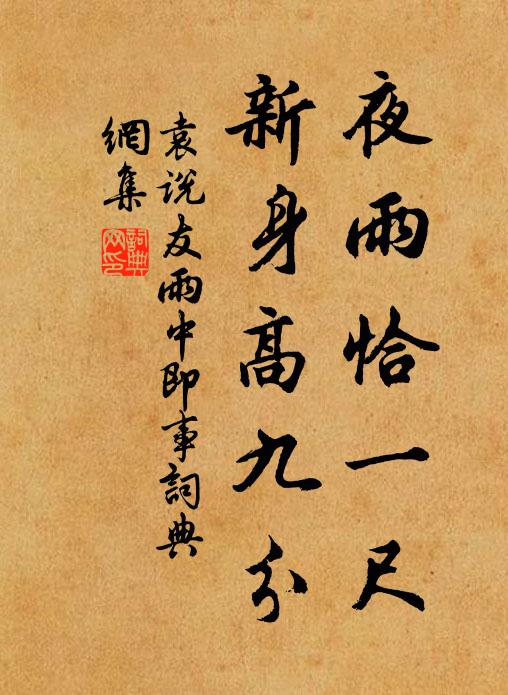 夜雨恰一尺
新身高九分
袁說友雨中即事詞典
網集
詞典網印